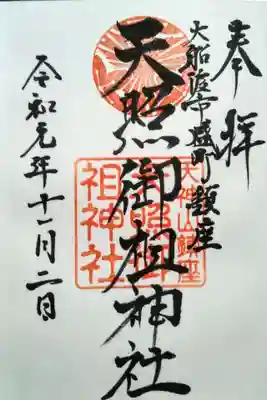 奉拝
大船渡市盛町鎮座
天照御祖神社
天神山鎮座
天照御
祖神社
令和元年十一月二日